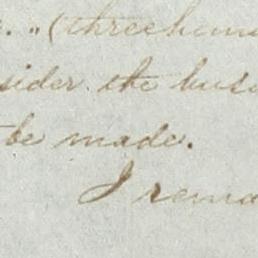 . " (three hun
sider the busi
be made.
I rema